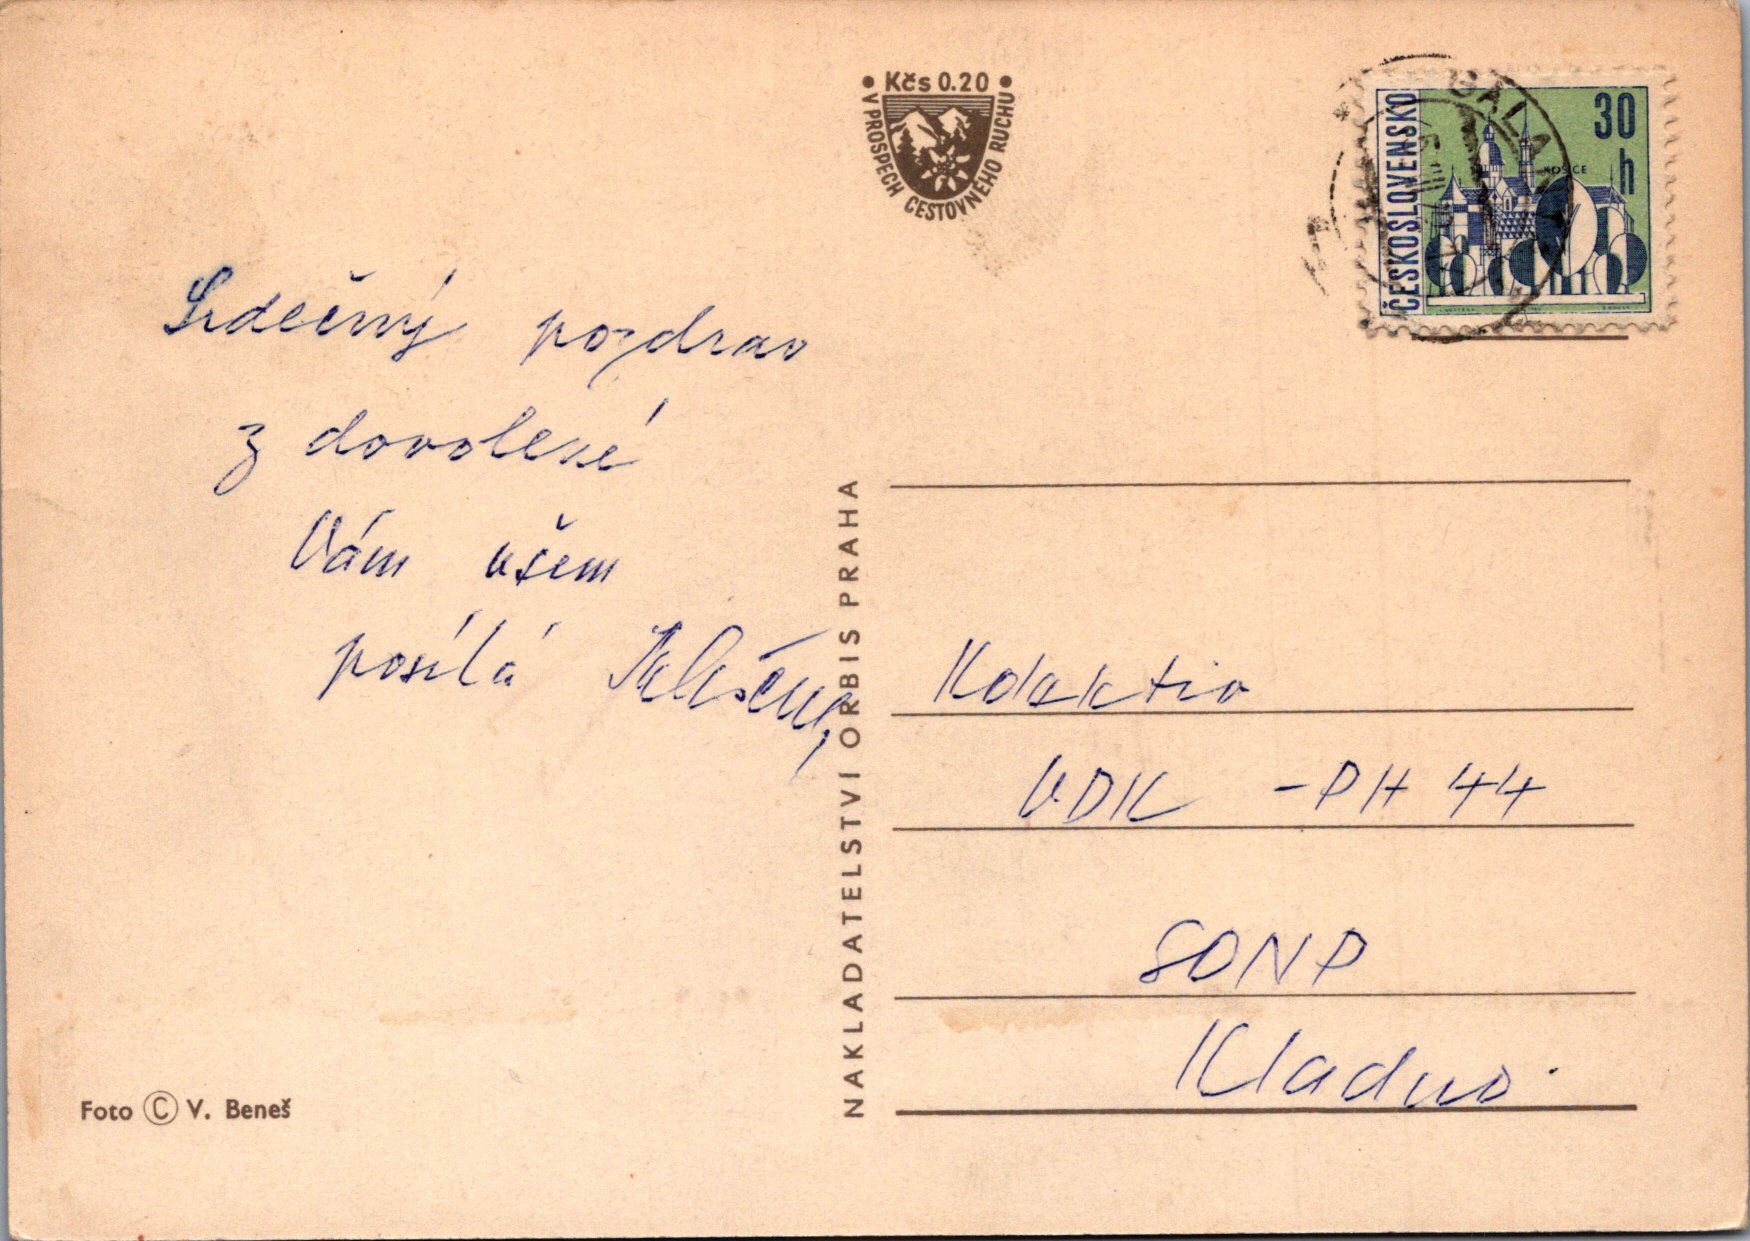 Kčs 0.20
V PROSPĚCH CESTOVNÉHO RUCHU
ČESKOSLOVENSKO
30 h
KOŠICE
GALANTA
Srdečný pozdrav
z dovolené
Vám všem
posílá
NAKLADATELSTVÍ ORBIS PRAHA
Kolektiv
VDK - PH 44
SONP
Kladno.
Foto © V. Beneš